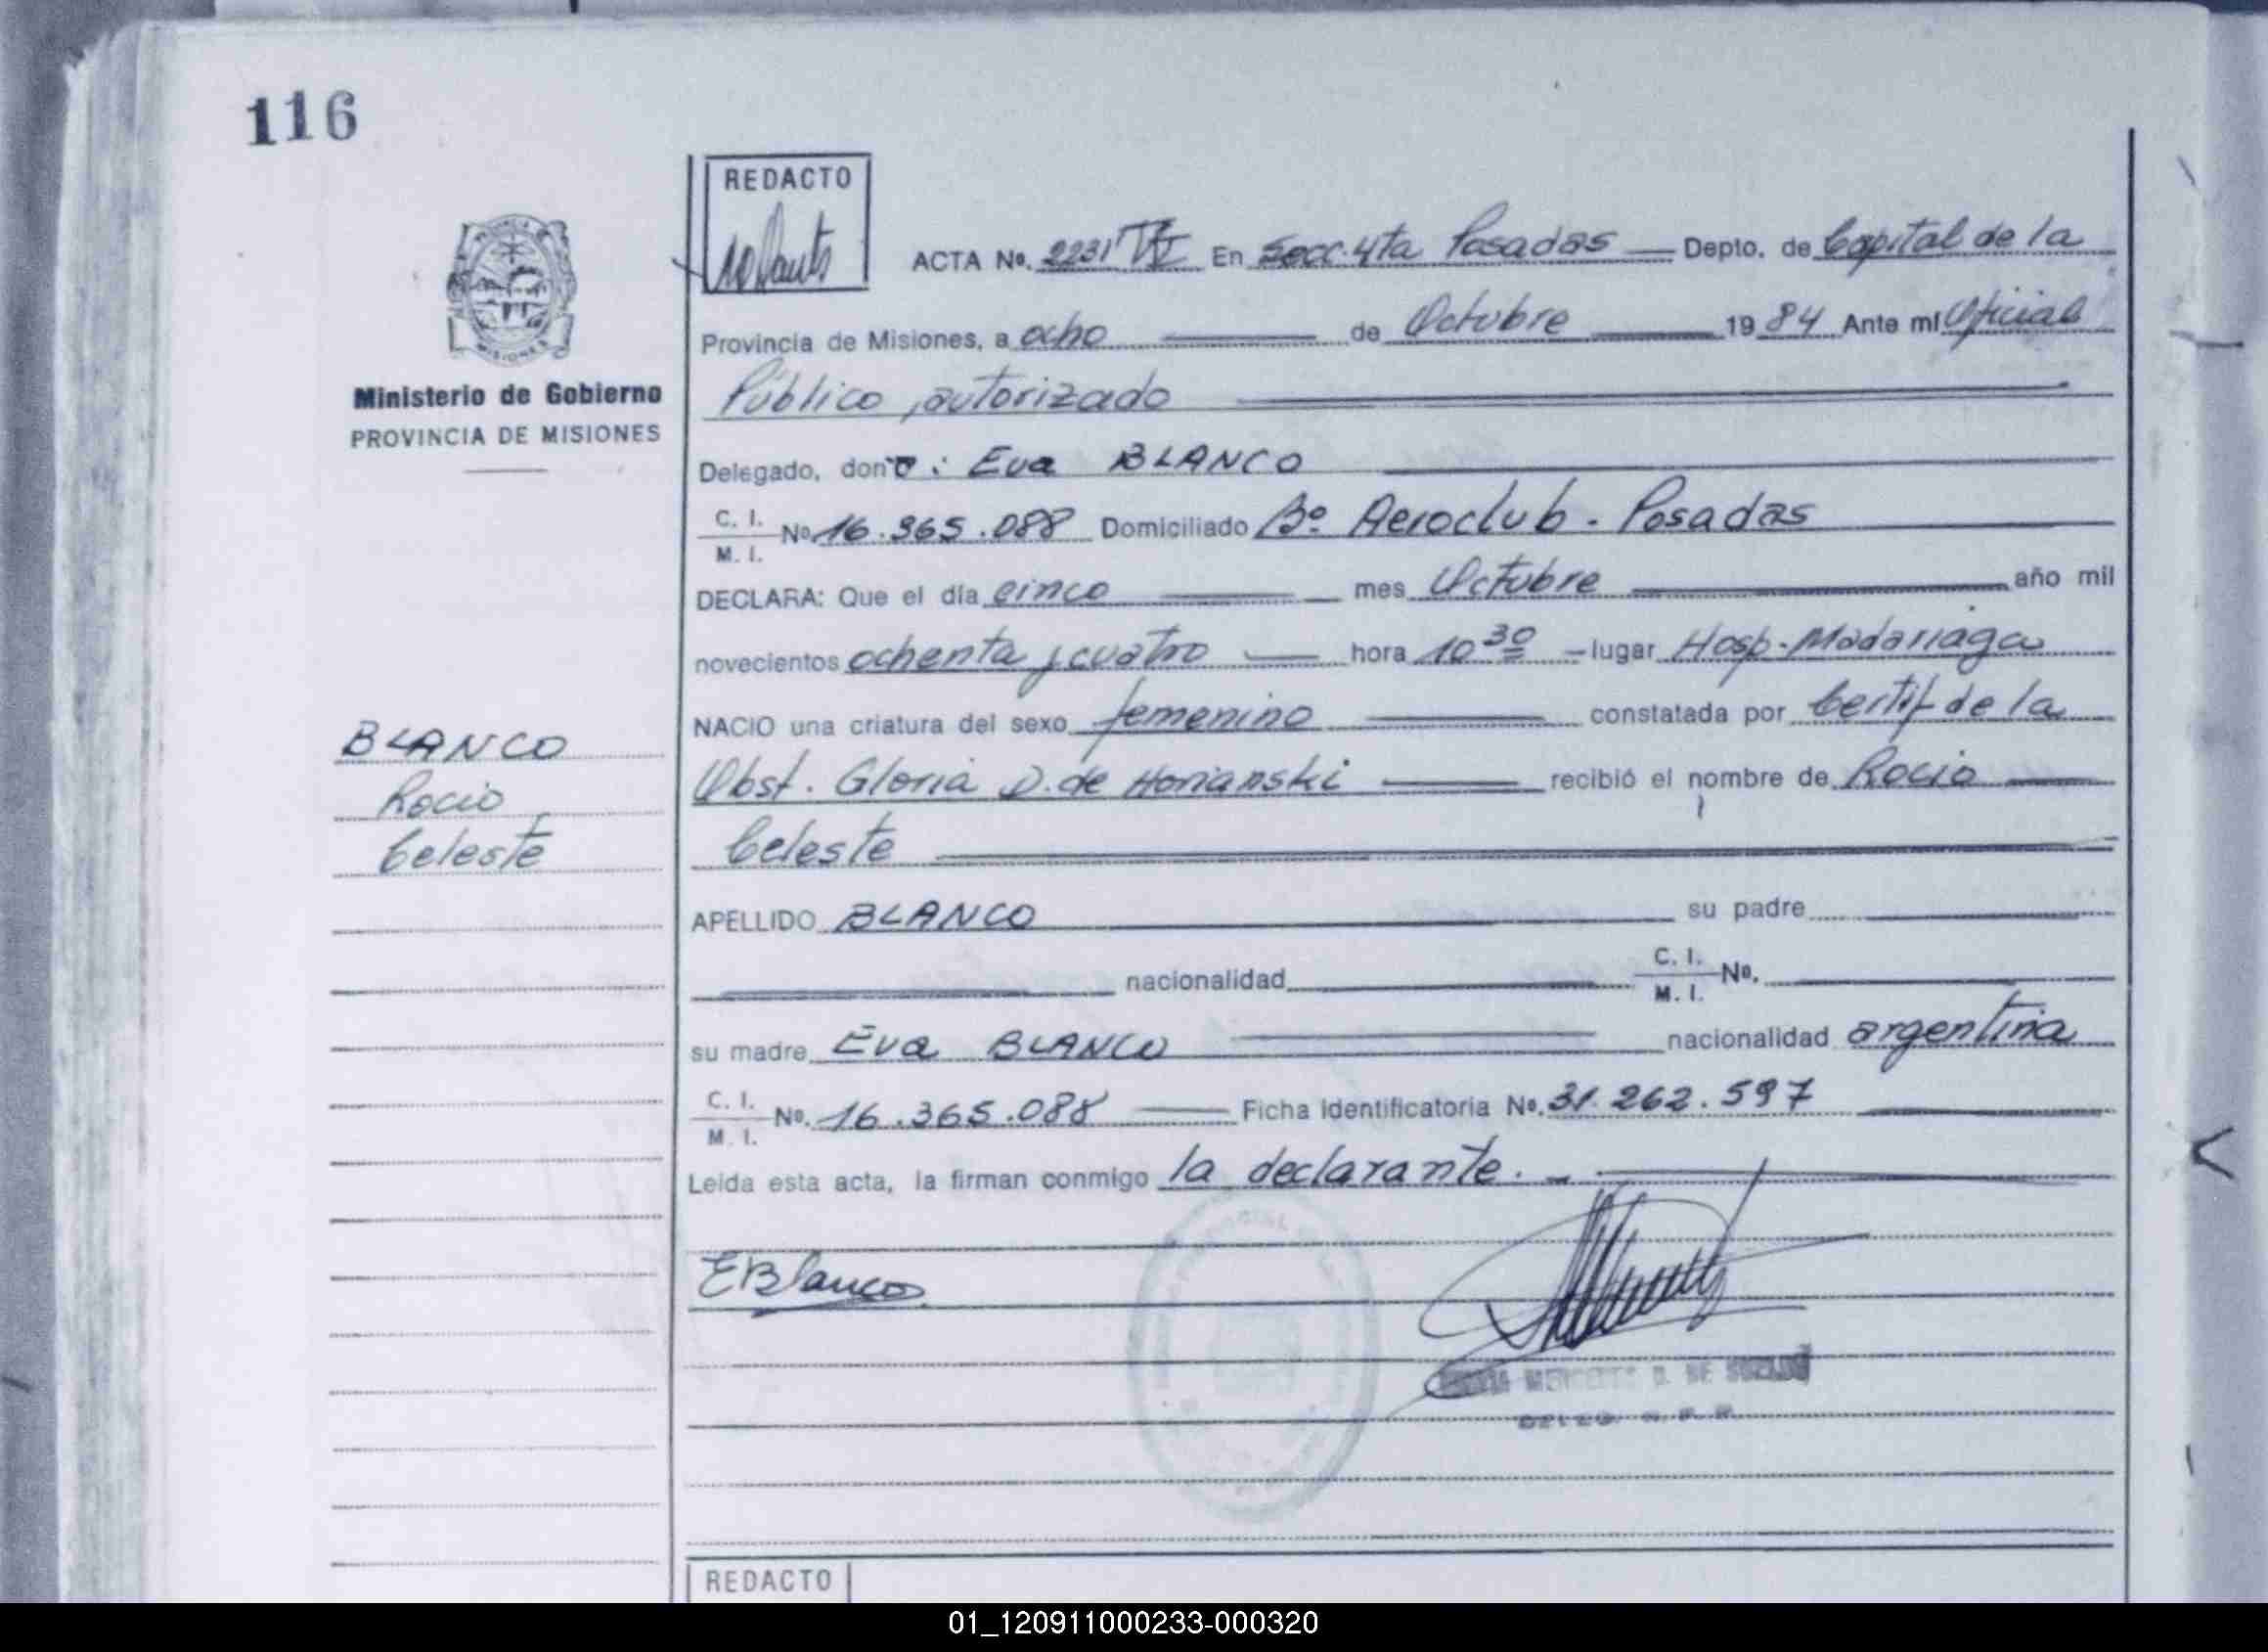 116
REDACTO
ACTA No. 2231 VI En Secc. 4ta Posadas Depto. de Capital de la
Provincia de Misiones, a ocho de Octubre 1984 Ante mi Oficial
Ministerio de Gobierno
Público autorizado
PROVINCIA DE MISIONES
Delegado, don : Eva BLANCO
C. I.
M. I. No 16.365.088 Domiciliado Bº Aeroclub - Posadas
DECLARA: Que el día cinco mes Octubre año mil
novecientos ochenta y cuatro hora 10 30 lugar Hosp. Madariaga
NACIO una criatura del sexo femenino constatada por Certif de la
BLANCO
Obst. Gloria D. de Horianski recibió el nombre de Rocio
Rocio
Celeste
Celeste
APELLIDO BLANCO su padre
nacionalidad C. I.
M. I. No.
su madre Eva BLANCO nacionalidad argentina
C. I.
M. I. No. 16.365.088 Ficha Identificatoria No. 31.262.597
Leida esta acta, la firman conmigo la declarante.
EBlanco
REDACTO
01_120911000233-000320